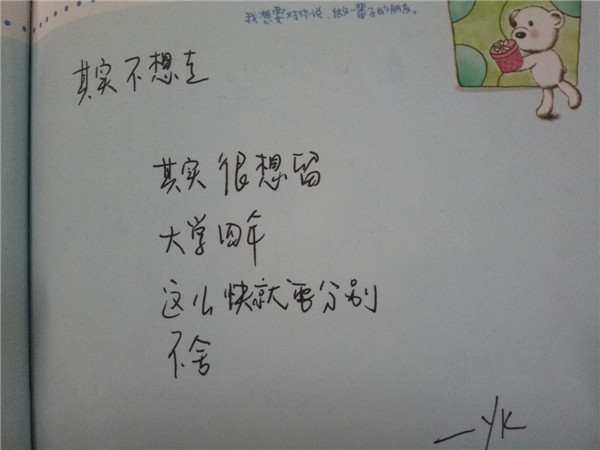 我想要对你说,做一辈子的朋友。
其实不想走
其实很想留
大学四年
这么快就要分别
不舍
—yk